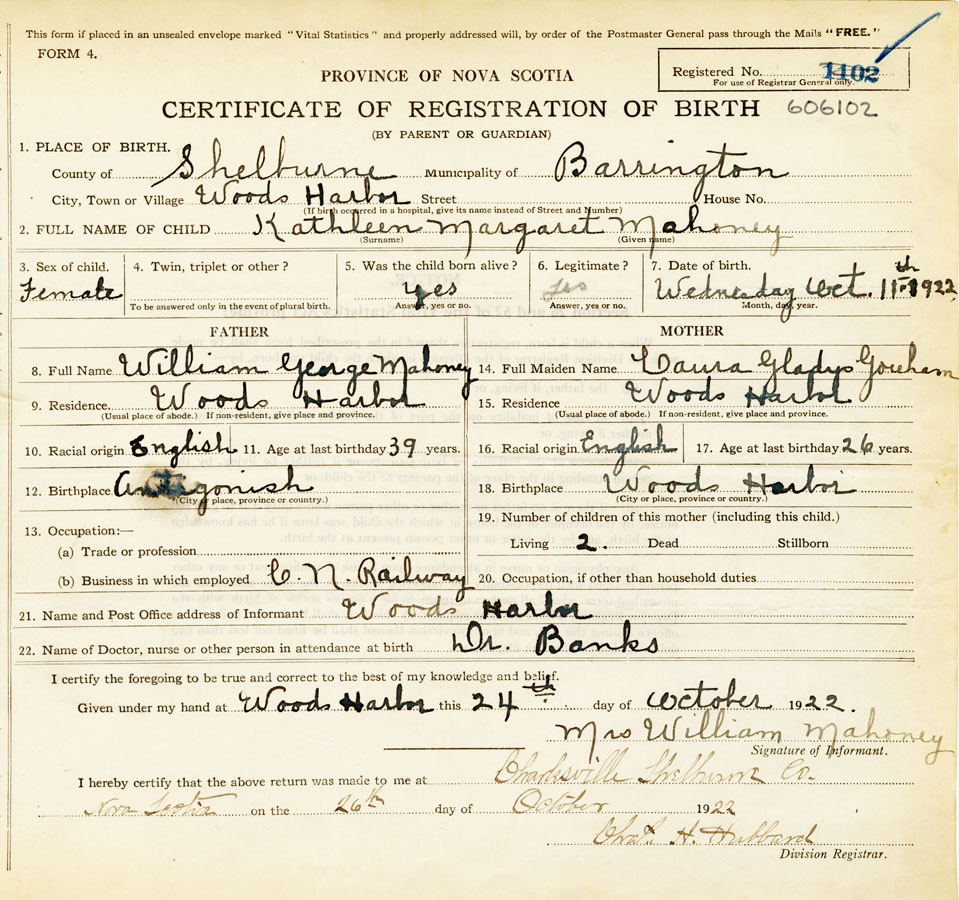 This form if placed in an unsealed envelope marked "Vital Statistics" and properly addressed will, by order of the Postmaster General pass through the Mails "FREE."
FORM 4.
Registered No. 1102
For use of Registrar General only.
PROVINCE OF NOVA SCOTIA
CERTIFICATE OF REGISTRATION OF BIRTH 606102
(BY PARENT OR GUARDIAN)
1. PLACE OF BIRTH.
County of Shelburne Municipality of Barrington
City, Town or Village Woods Harbor Street House No.
(If birth occurred in a hospital, give its name instead of Street and Number)
2. FULL NAME OF CHILD Kathleen Margaret Mahoney
(Surname) (Given name)
3. Sex of child. 4. Twin, triplet or other? 5. Was the child born alive? 6. Legitimate? 7. Date of birth.
Female yes yes Wednesday Oct. 11th 1922
To be answered only in the event of plural birth. Answer, yes or no. Answer, yes or no. Month, day, year.
FATHER MOTHER
8. Full Name William George Mahoney 14. Full Maiden Name Laura Gladys Goreham
9. Residence. Woods Harbor 15. Residence Woods Harbor
(Usual place of abode.) If non-resident, give place and province. (Usual place of abode.) If non-resident, give place and province.
10. Racial origin English 11. Age at last birthday 39 years. 16. Racial origin English 17. Age at last birthday 26 years.
12. Birthplace Antigonish 18. Birthplace Woods Harbor
(City or place, province or country.) (City or place, province or country.)
13. Occupation:— 19. Number of children of this mother (including this child.)
(a) Trade or profession Living 2. Dead Stillborn
(b) Business in which employed C. N. Railway 20. Occupation, if other than household duties
21. Name and Post Office address of Informant Woods Harbor
22. Name of Doctor, nurse or other person in attendance at birth Dr. Banks
I certify the foregoing to be true and correct to the best of my knowledge and belief.
Given under my hand at Woods Harbor this 24th day of October 1922.
Mrs William Mahoney
Signature of Informant.
I hereby certify that the above return was made to me at Charlesville Shelburne Co.
Nova Scotia on the 26th day of October 1922
Chas. H. Hubbard
Division Registrar.